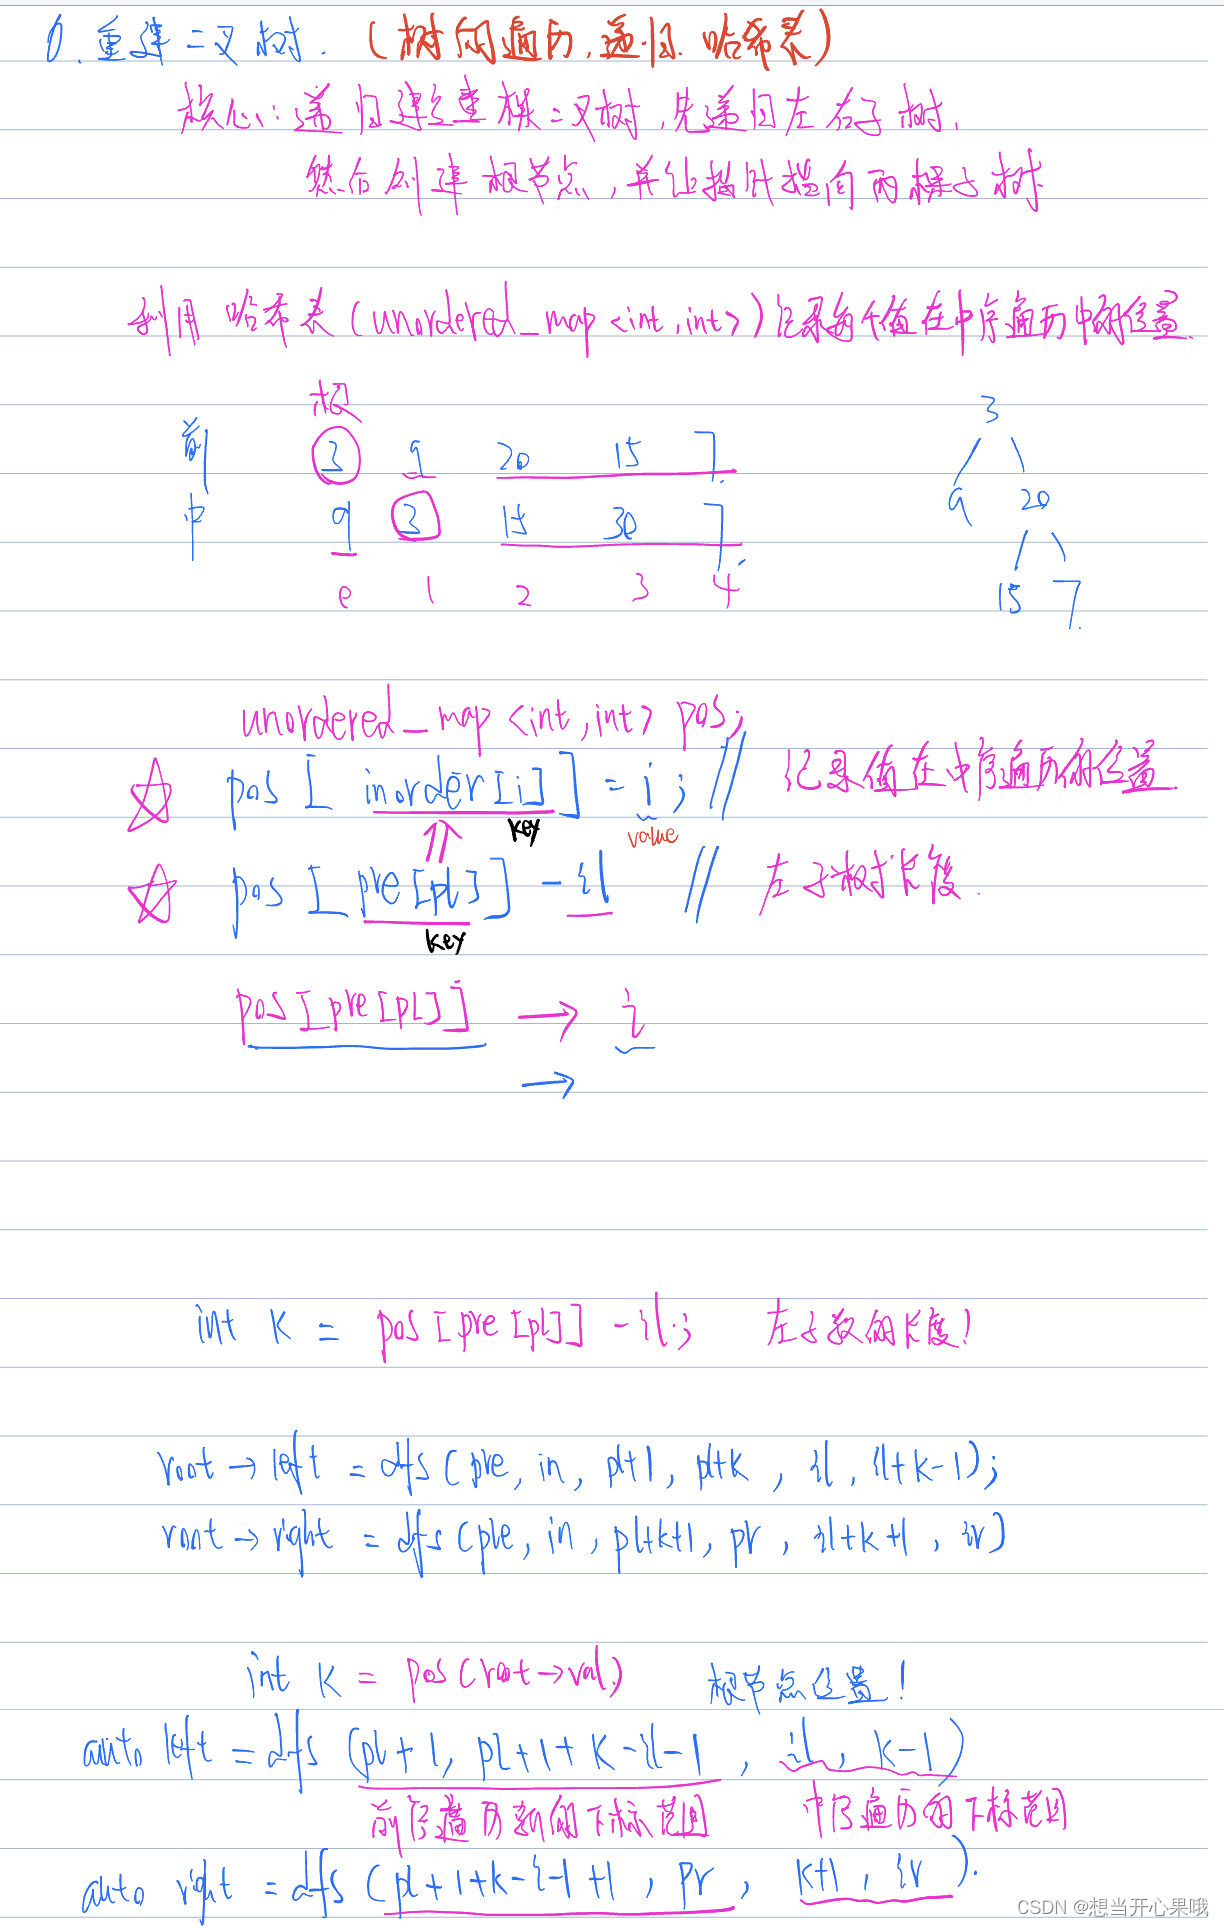 0. 重建二叉树. (树的遍历, 递归. 哈希表)
核心: 递归建立整棵二叉树, 先递归左右子树,
然后创建根节点, 并让指针指向两棵子树
利用哈希表 (unordered_map <int, int>) 记录每个值在中序遍历中的位置.
根
前 3 9 20 15 7
中 9 3 15 30 7
0 1 2 3 4
3
9 20
15 7
unordered_map <int, int> pos;
pos [ inorder[i] ] = i ; // 记录值在中序遍历的位置
key value
pos [ pre[pl] ] - il // 左子树长度.
key
pos[pre[pl]] → i
→
int k = pos[pre[pl]] - il ; 左子数的长度!
root → left = dfs ( pre, in, pl+1, pl+k , il, il+k-1);
root → right = dfs ( pre, in, pl+k+1, pr, il+k+1, ir)
int k = pos(root→val) 根节点位置!
auto left = dfs (pl+1, pl+1+k-il-1, il, k-1)
前序遍历新的下标范围 中序遍历的下标范围
auto right = dfs (pl+1+k-i-1+1, pr, k+1, ir).
CSDN @想当开心果哦